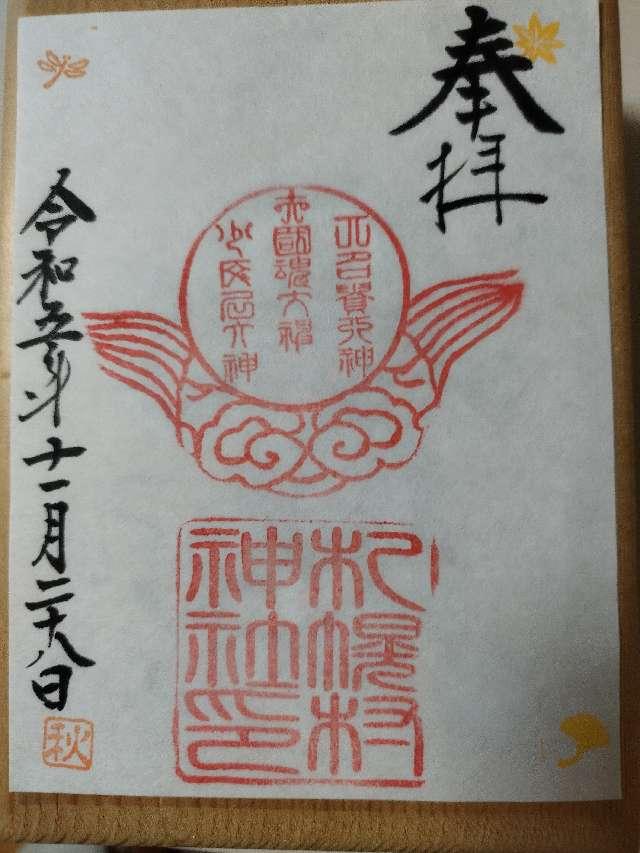 奉拝
大名貴大神
大國魂大神
少彦名大神
札幌村
神社印
令和五年十一月二十八日
秋